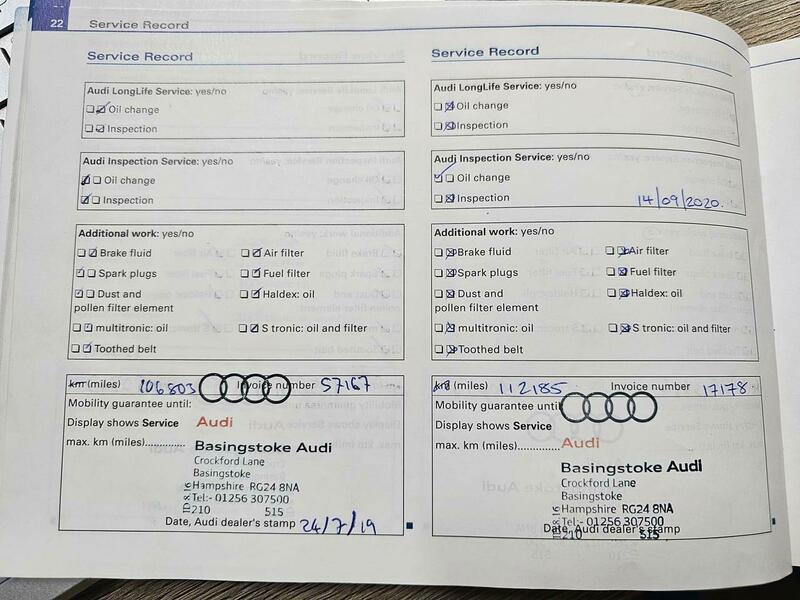 22 Service Record
Service Record
Audi LongLife Service: yes/no
Oil change
Inspection
Audi Inspection Service: yes/no
Oil change
Inspection
Additional work: yes/no
Brake fluid Air filter
Spark plugs Fuel filter
Dust and Haldex: oil
pollen filter element
multitronic: oil S tronic: oil and filter
Toothed belt
km (miles) 106803 Invoice number 57167
Mobility guarantee until:
Display shows Service Audi
max. km (miles)..............
Basingstoke Audi
Crockford Lane
Basingstoke
Hampshire RG24 8NA
Tel:- 01256 307500
210 515
Date, Audi dealer's stamp 24/7/19
Service Record
Audi LongLife Service: yes/no
Oil change
Inspection
Audi Inspection Service: yes/no
Oil change
Inspection 14/09/2020.
Additional work: yes/no
Brake fluid Air filter
Spark plugs Fuel filter
Dust and Haldex: oil
pollen filter element
multitronic: oil S tronic: oil and filter
Toothed belt
km (miles) 112185 Invoice number 17178
Mobility guarantee until
Display shows Service
max. km (miles)..............Audi
Basingstoke Audi
Crockford Lane
Basingstoke
Hampshire RG24 8NA
Tel:- 01256 307500
Date, Audi dealer's stamp
210 515